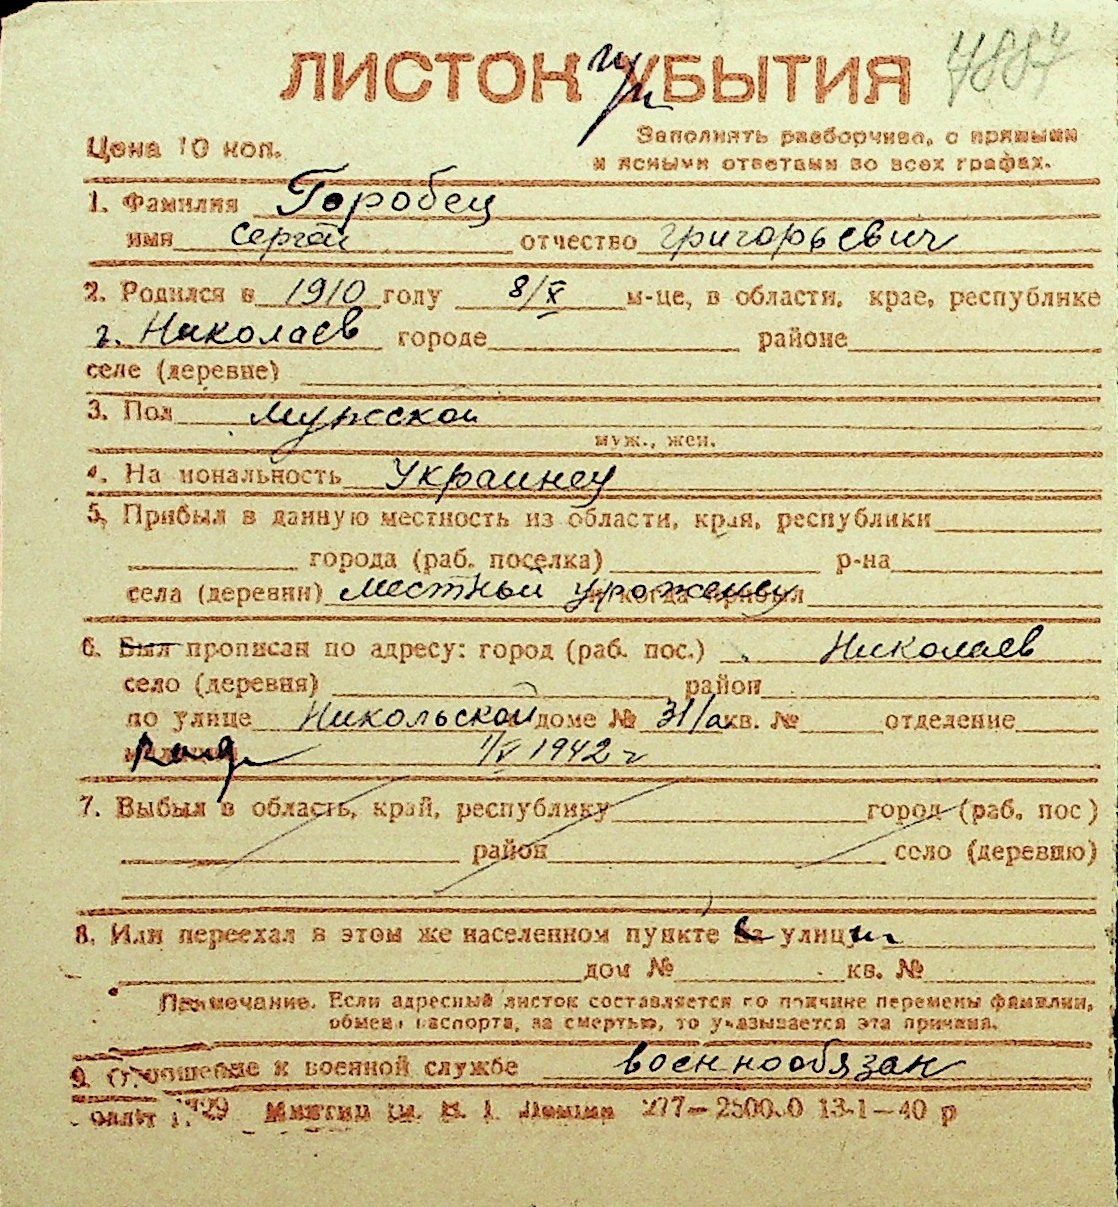 ЛИСТОК УБЫТИЯ
Цена 10 коп.
Заполнять разборчиво, с прямыми
и ясными ответами во всех графах.
1. Фамилия Горобец
имя Сергей отчество Григорьевич
2. Родился в 1910 году 8/X м-це, в области, крае, республике
г. Николаев городе районе
селе (деревне)
3. Пол Мужской
муж., жен.
4. Национальность Украинец
5. Прибыл в данную местность из области, края, республики
города (раб. поселка) р-на
села (деревни) местный уроженец когда прибыл
6. Был прописан по адресу: город (раб. пос.) Николаев
село (деревня) район
по улице Никольской доме № 31/а кв. № отделение
1/V 1942 г
7. Выбыл в область, край, республику город (раб. пос)
район село (деревню)
8. Или переехал в этом же населенном пункте улицу
дом № кв. №
Примечание. Если адресный листок составляется по причине перемены фамилии,
обмена паспорта, за смертью, то указывается эта причина.
9. Отношение к военной службе военнообязан
277— 13-1—40 р